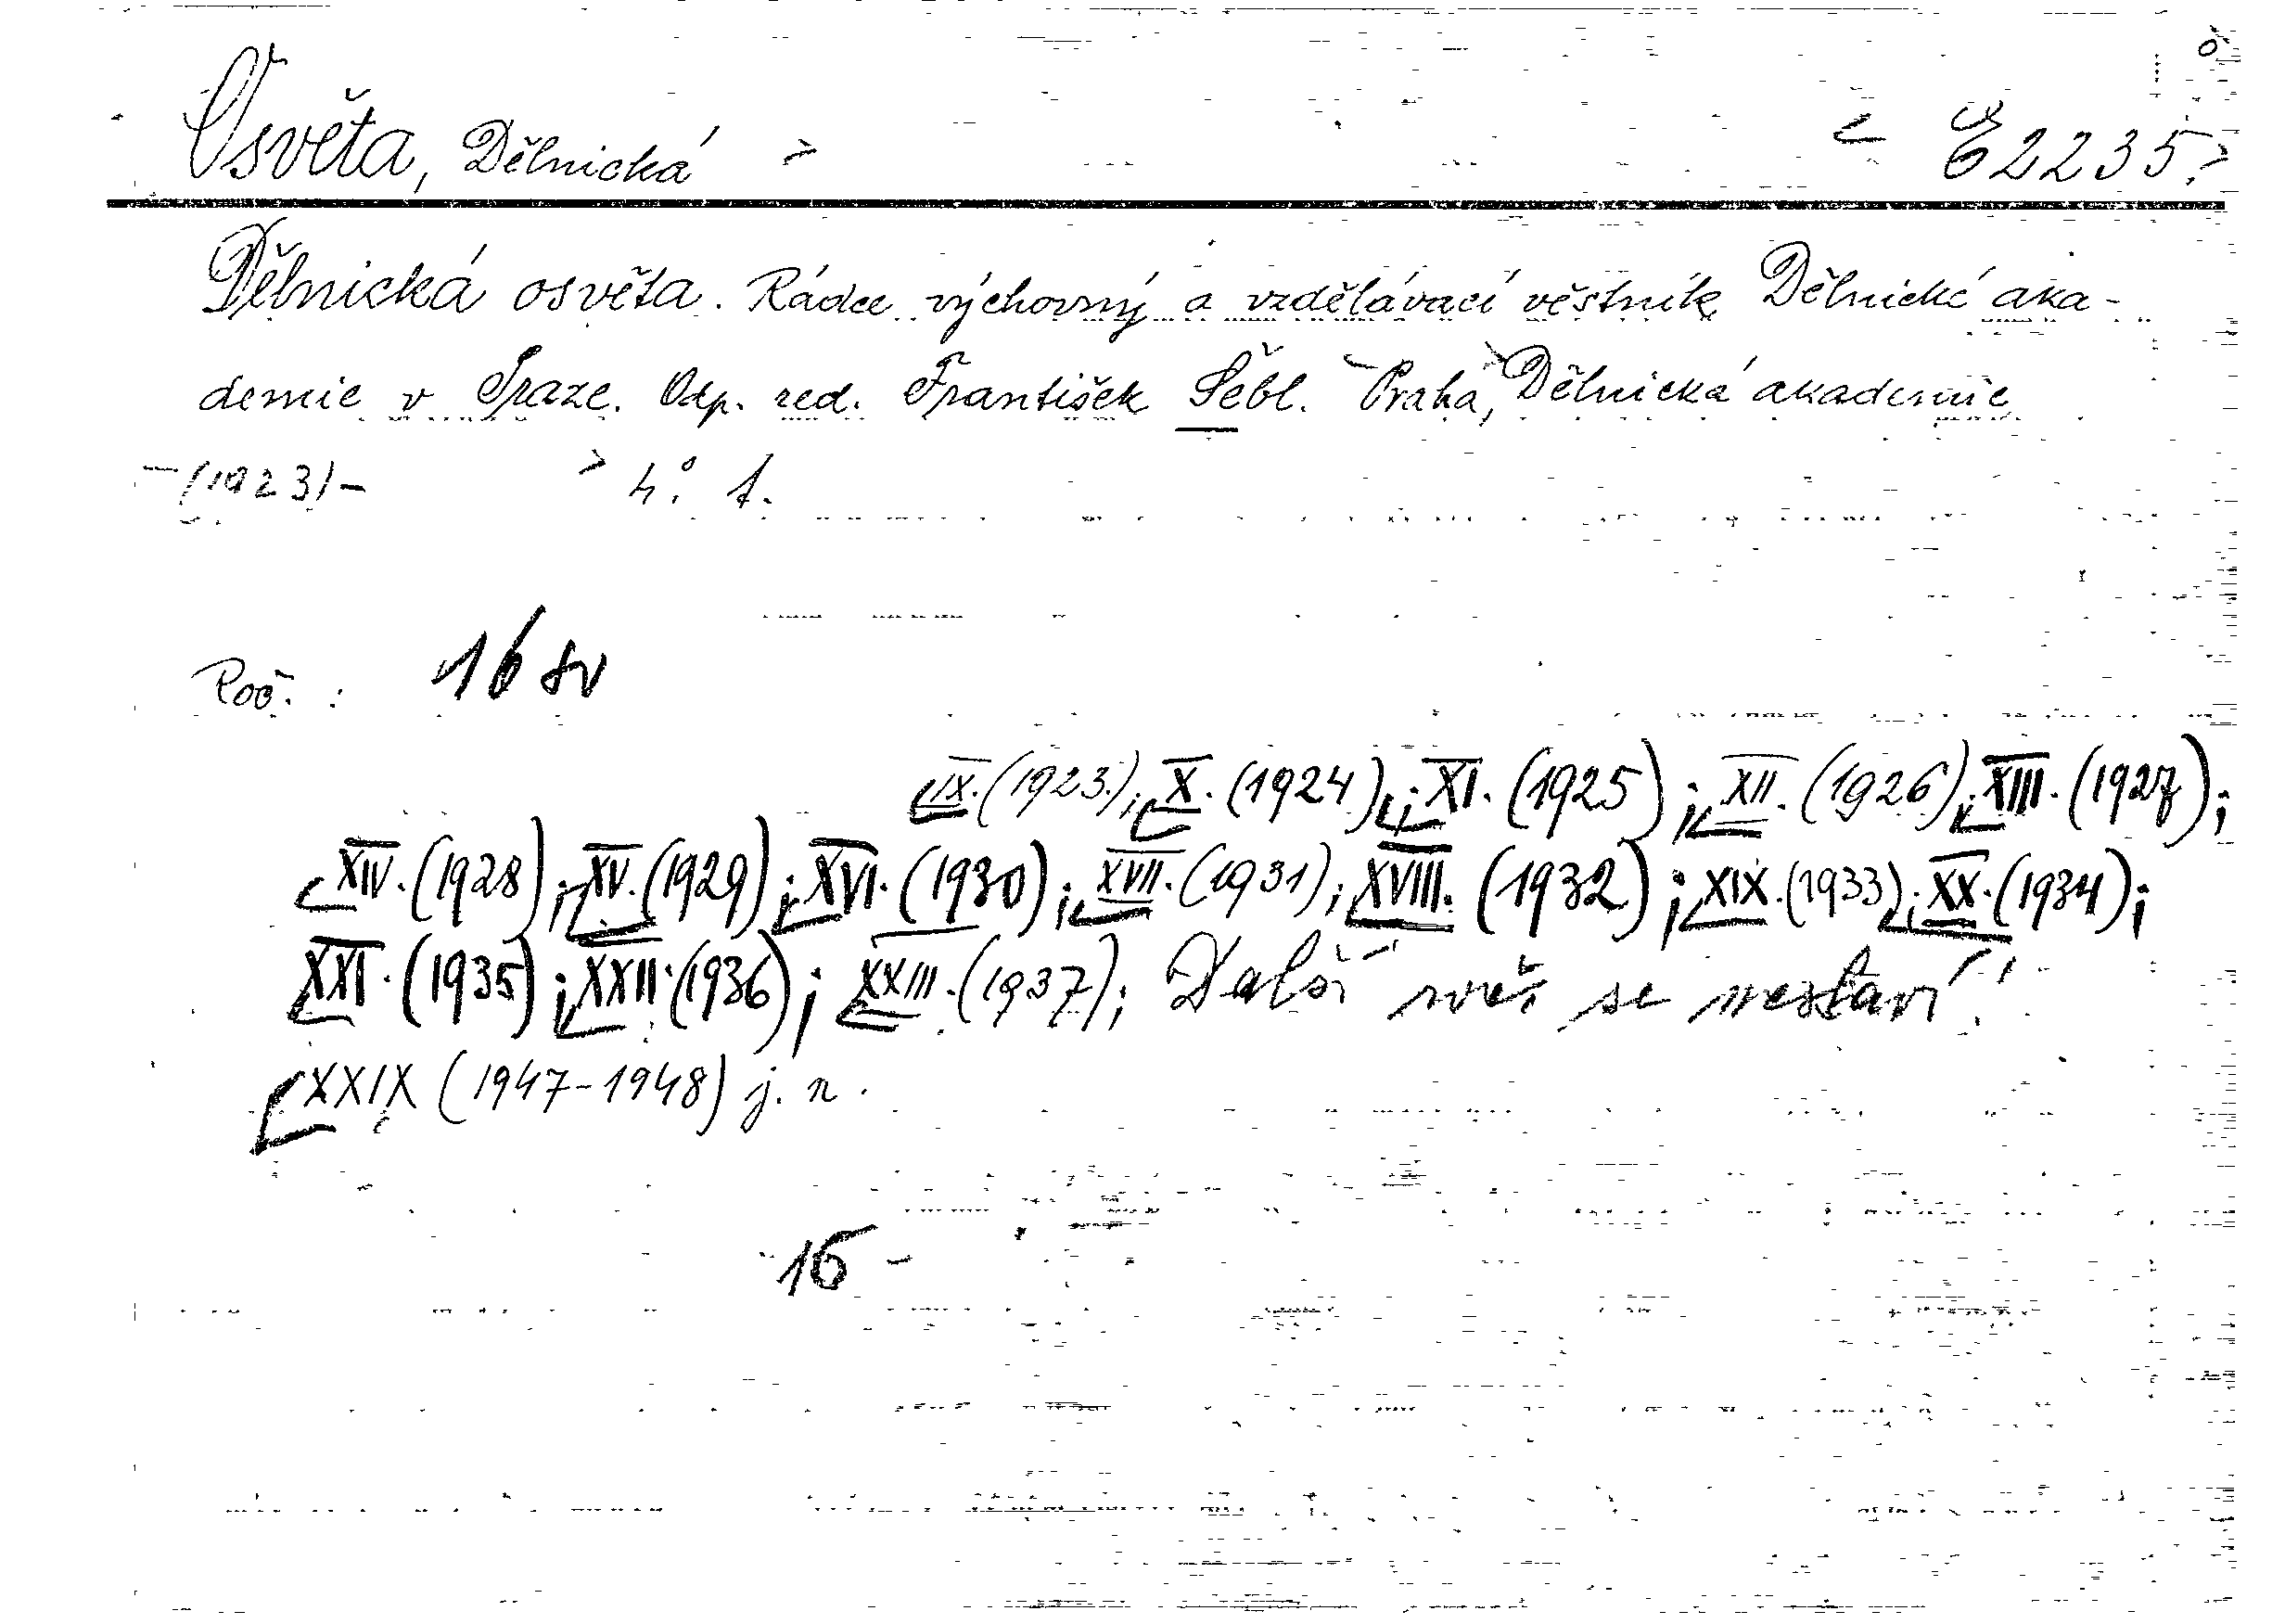 Osvěta, Dělnická E 2235.
Dělnická osvěta. Rádce výchovný a vzdělávací věstník Dělnické aka-
demie v Praze. Odp. red. František Šébl. Praha, Dělnická akademie
– (1923) – 4°. f.
Roč. : 16 sv
IX. (1923.); X. (1924); XI. (1925); XII. (1926); XIII. (1927);
XIV. (1928); XV. (1929); XVI. (1930); XVII. (1931); XVIII. (1932); XIX. (1933); XX. (1934);
XXI. (1935); XXII. (1936); XXIII. (1937); Další se nestaví!
XXIX (1947-1948) j. n.
16 –